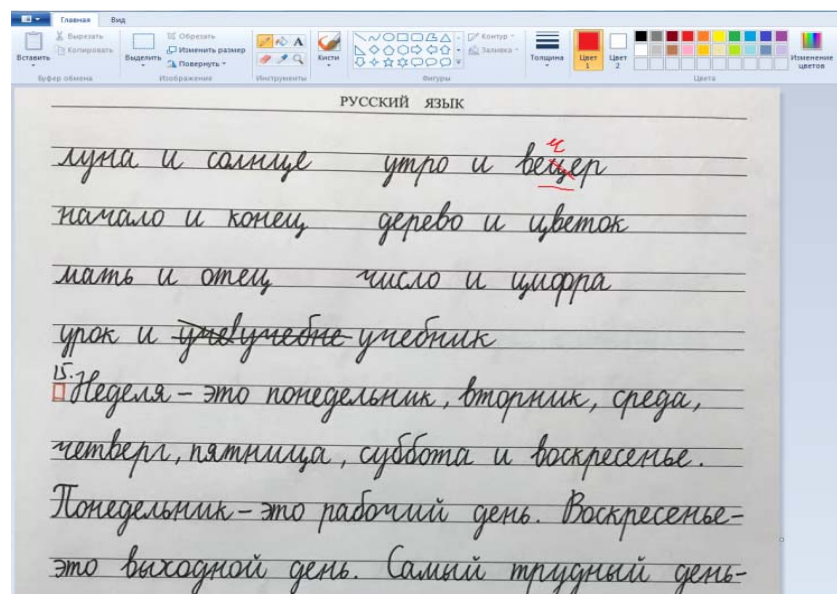 Главная Вид
Вставить
Вырезать
Копировать
Буфер обмена
Выделить
Обрезать
Изменить размер
Повернуть
Изображение
Инструменты
Кисти
Контур
Заливка
Фигуры
Толщина
Цвет 1
Цвет 2
Изменение цветов
Цвета
РУССКИЙ ЯЗЫК
ч
луна и солнце утро и вецер
начало и конец дерево и цветок
мать и отец число и цифра
урок и учебне учебник
15.
Неделя – это понедельник, вторник, среда,
четверг, пятница, суббота и воскресенье.
Понедельник – это рабочий день. Воскресенье –
это выходной день. Самый трудный день –